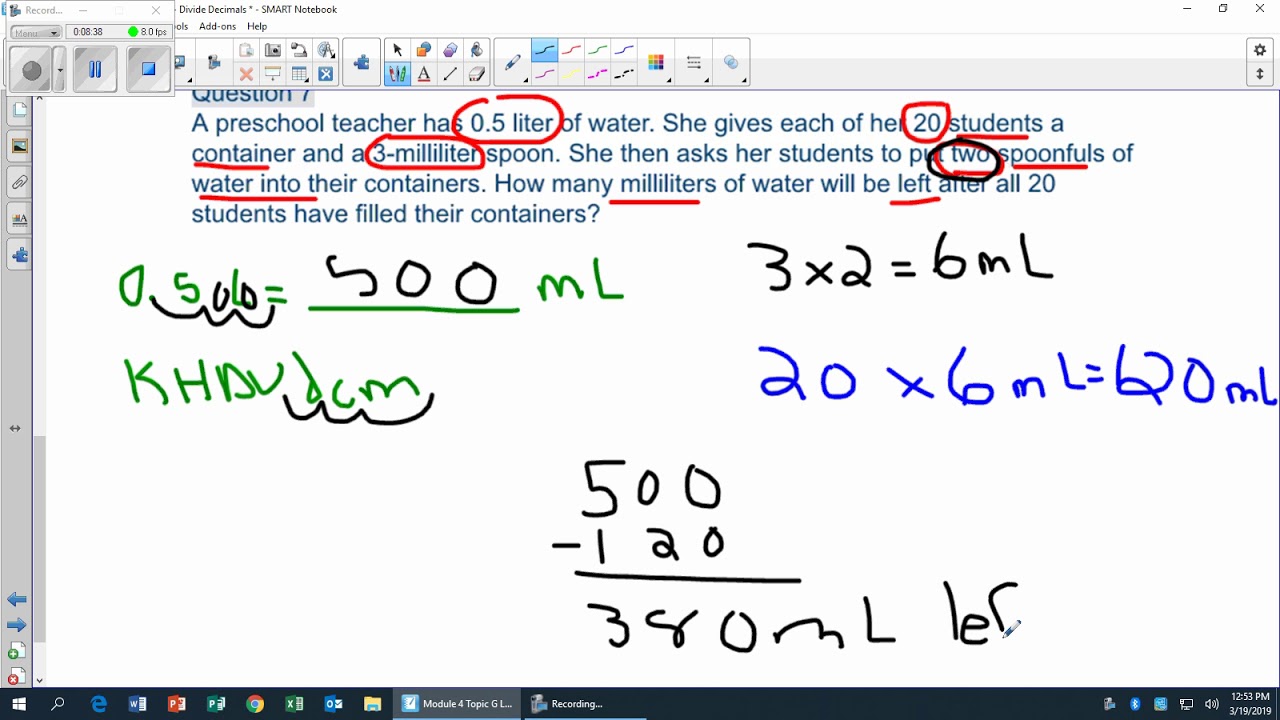 Record...
- Divide Decimals * - SMART Notebook
Menu
0:08:38
8.0 fps
ols Add-ons Help
Question 7
A preschool teacher has 0.5 liter of water. She gives each of her 20 students a
container and a 3-milliliter spoon. She then asks her students to put two spoonfuls of
water into their containers. How many milliliters of water will be left after all 20
students have filled their containers?
0.500= 500 mL
3×2=6mL
KHDUdcm
20 ×6mL=620mL
500
-120
380mL lef
Module 4 Topic G L...
Recording...
12:53 PM
3/19/2019